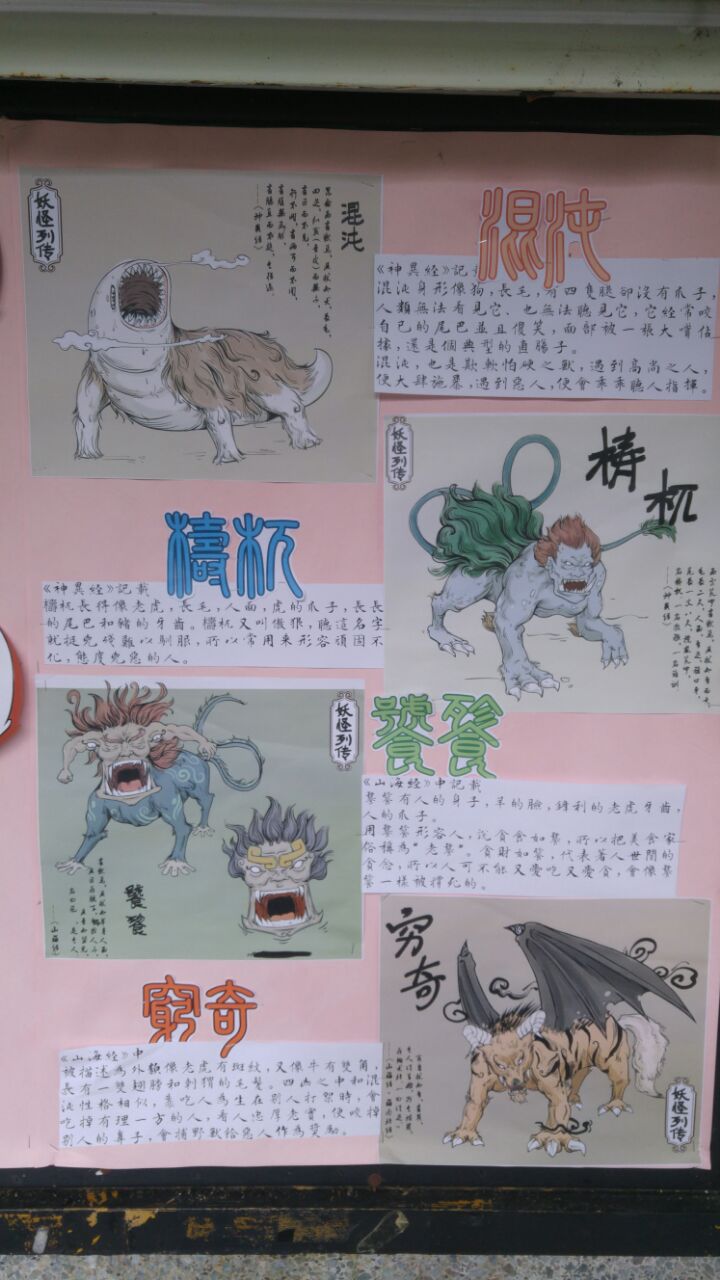 妖怪列传
混沌
——《神異經》
混沌
《神異經》記載
混沌身形像狗，長毛，有四隻腿卻沒有爪子，
人類無法看見它、也無法聽見它，它經常咬
自己的尾巴並且傻笑，面部被一張大嘴佔
據，還是個典型的直腸子。
混沌，也是欺軟怕硬之獸，遇到高尚之人，
便大肆施暴，遇到惡人，便會乖乖聽人指揮。
妖怪列传
梼杌
——《神異經》
檮杌
《神異經》記載
檮杌長得像老虎，長毛，人面，虎的爪子，長長
的尾巴和豬的牙齒。檮杌又叫傲狠，聽這名字
就挺兇殘難以馴服，所以常用來形容頑固不
化，態度兇惡的人。
妖怪列传
饕餮
——《山海經》
饕餮
《山海經》中記載
饕餮有人的身子，羊的臉，鋒利的老虎牙齒，
人的爪子。
用饕餮形容人，說貪食如饕，所以把美食家
俗稱為"老饕"。貪財如餮，代表著人世間的
貪念，所以人可不能又愛吃又愛貪，會像饕
餮一樣被撐死的。
穷奇
妖怪列传
窮奇
《山海經》中
被描述為外貌像老虎有斑紋，又像牛有雙角，
長有一雙翅膀和刺猬的毛髮。四凶之中和混
沌性格相似，靠吃人為生在別人打架時，會
吃掉有理一方的人，看人忠厚老實，便咬掉
別人的鼻子，會捕野獸給惡人作為獎勵。